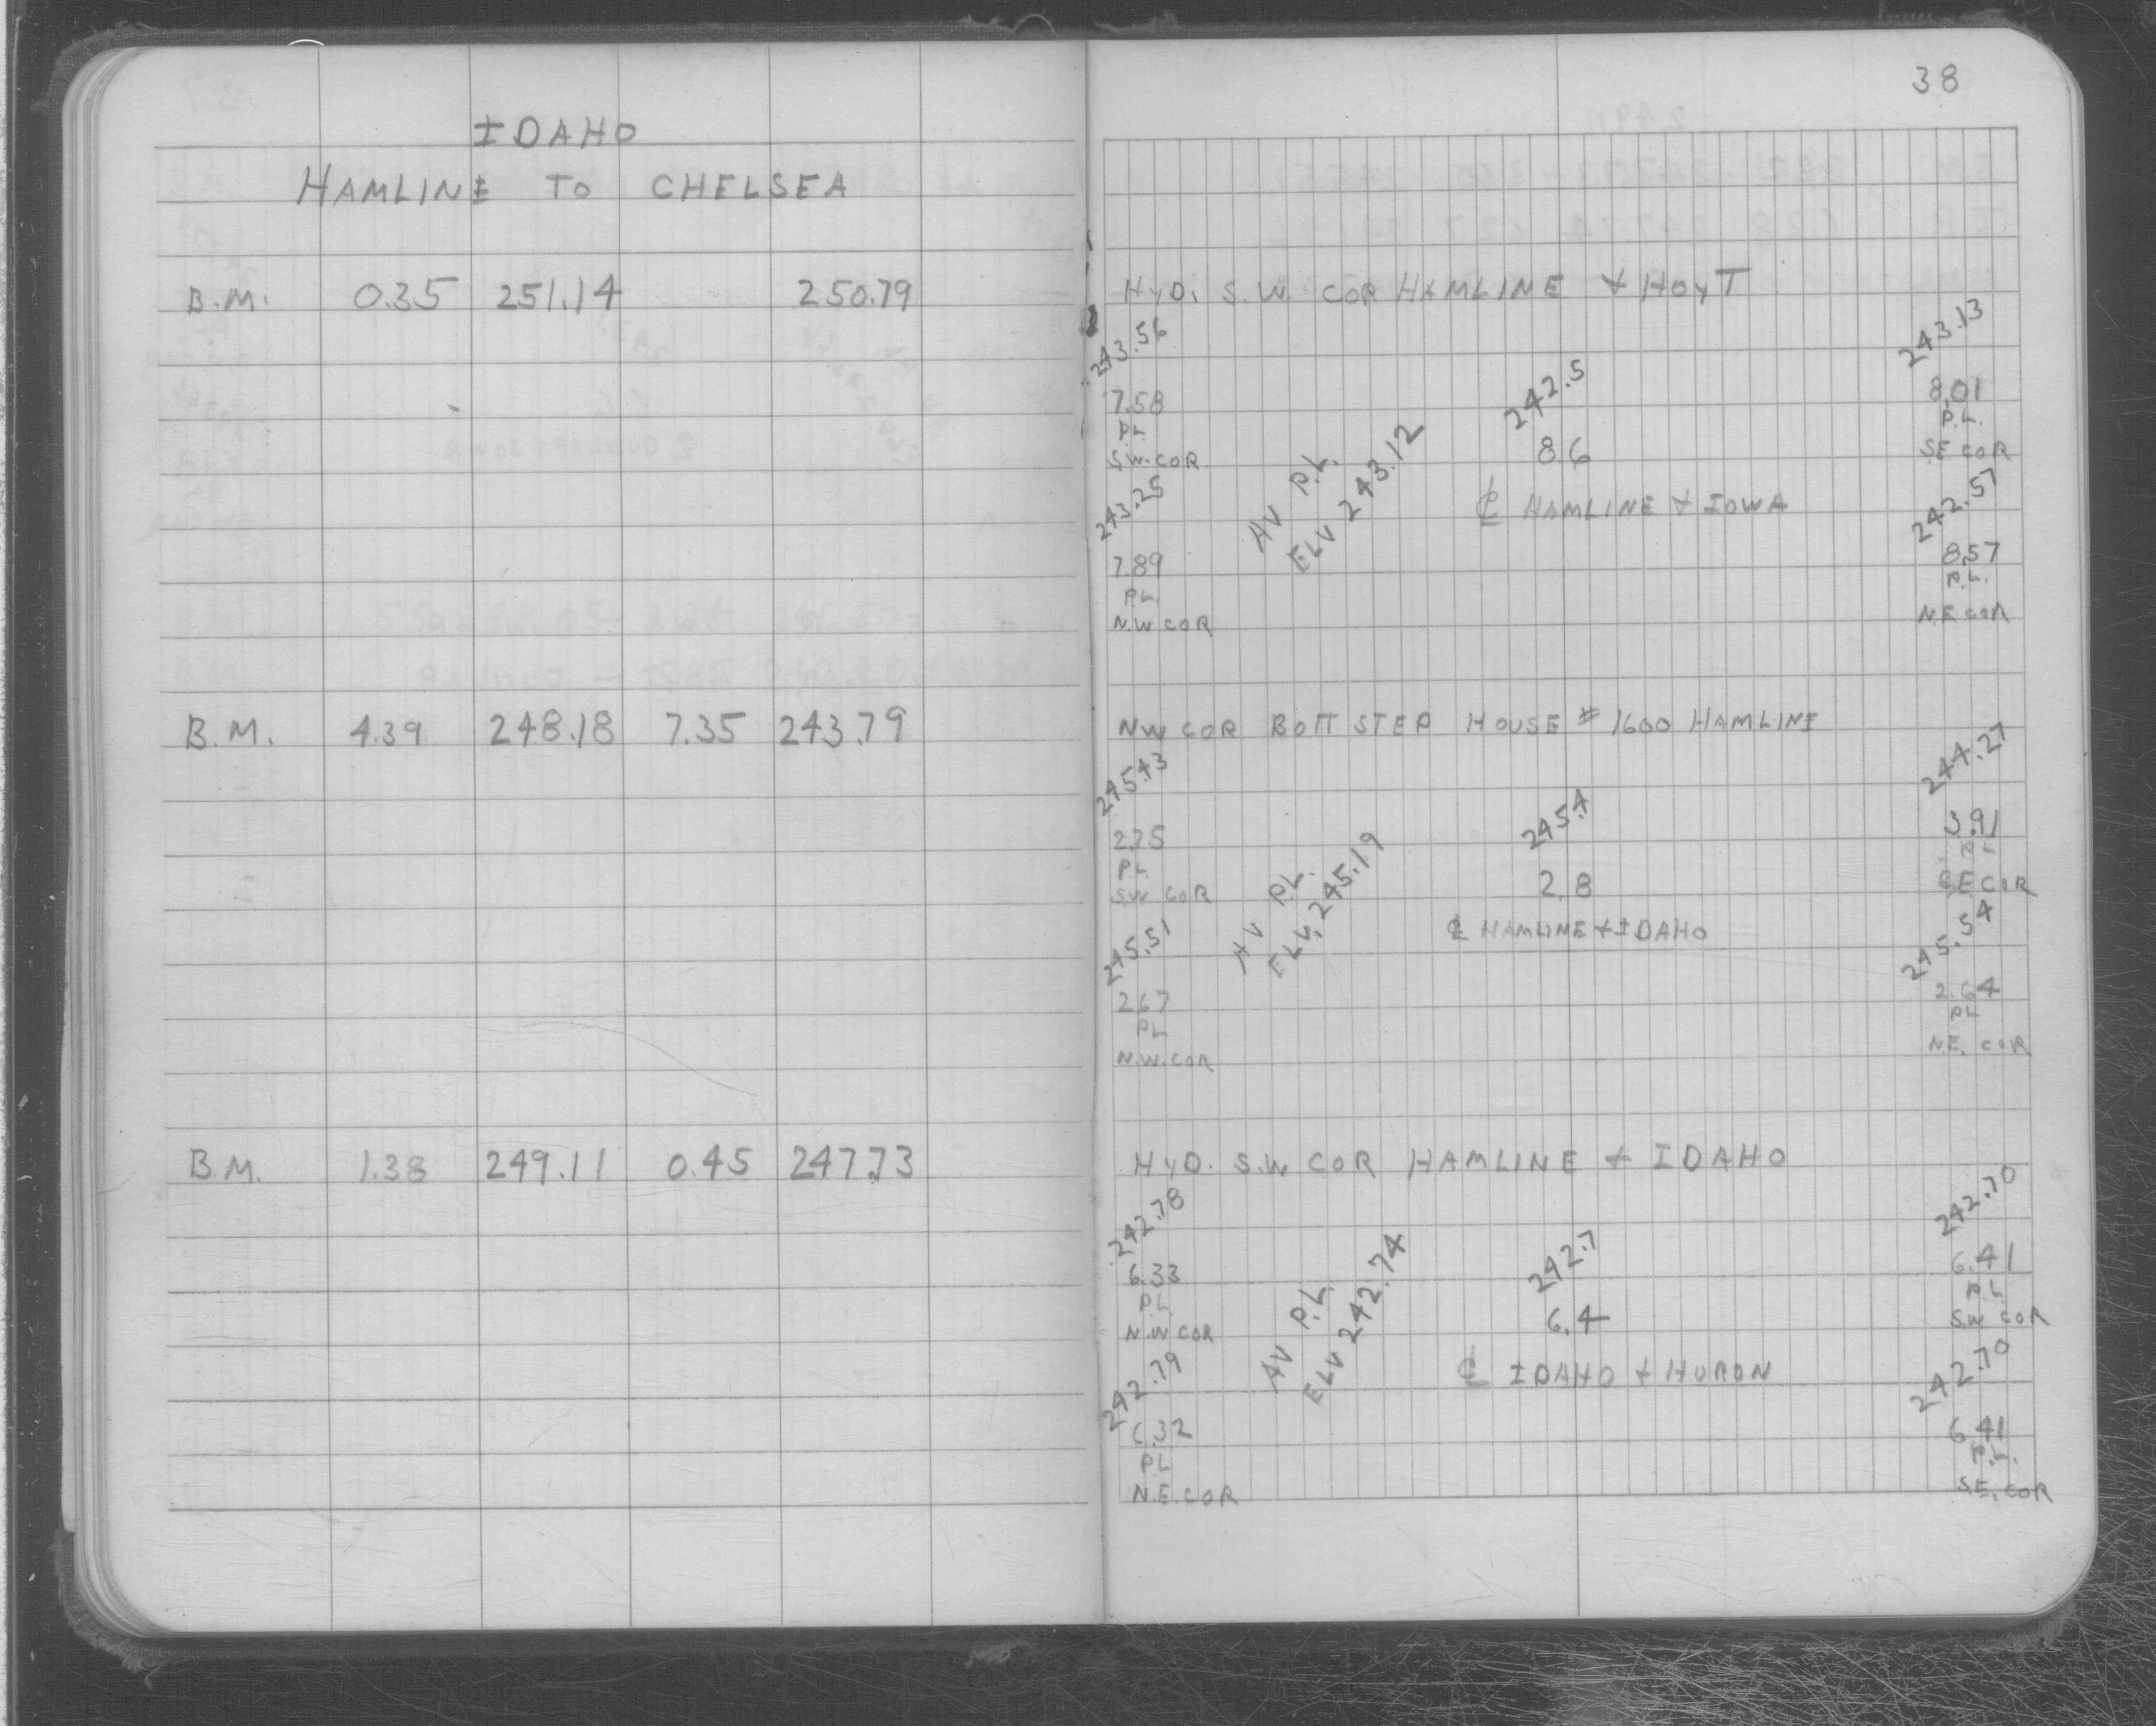 IDAHO
HAMLINE TO CHELSEA
B.M. 0.35 251.14 250.79
B.M. 4.39 248.18 7.35 243.79
B.M. 1.38 249.11 0.45 247.73
38
HYD. S.W. COR HAMLINE & HOYT
243.56 242.5 243.13
7.58 8.6 8.01
P.L. P.L.
S.W. COR. S.E. COR
AV P.L.
ELV 243.12
℄ HAMLINE & IOWA
243.25 242.57
7.89 8.57
P.L. P.L.
N.W COR N.E COR
NW COR BOTT STEP HOUSE # 1600 HAMLINE
245.43 245.4 244.27
2.75 2.8 3.91
P.L. P.L
S.W COR S.E COR
AV P.L.
ELV. 245.19
℄ HAMLINE & IDAHO
245.51 245.54
2.67 2.64
P.L P.L
N.W. COR N.E. COR
HYD. S.W COR HAMLINE & IDAHO
242.78 242.7 242.70
6.33 6.4 6.41
P.L. P.L
N.W COR S.W COR
AV P.L.
ELV 242.74
℄ IDAHO & HURON
242.79 242.70
6.32 6.41
P.L P.L.
N.E. COR S.E. COR